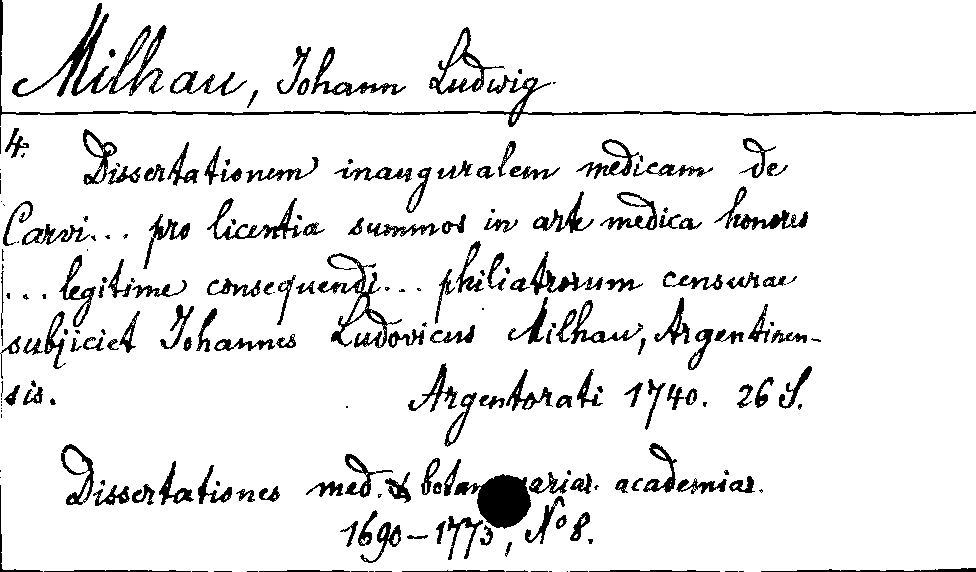 Milhau, Johann Ludwig
4.
Dissertationem inauguralem medicam de
Carvi... pro licentia summos in arte medica honores
... legitime consequendi... philiatrorum censurae
subjiciet Johannes Ludovicus Milhau, Argentinen-
sis.
Argentorati 1740. 26 S.
Dissertationes med. & academiar.
1690-1773, No 8.